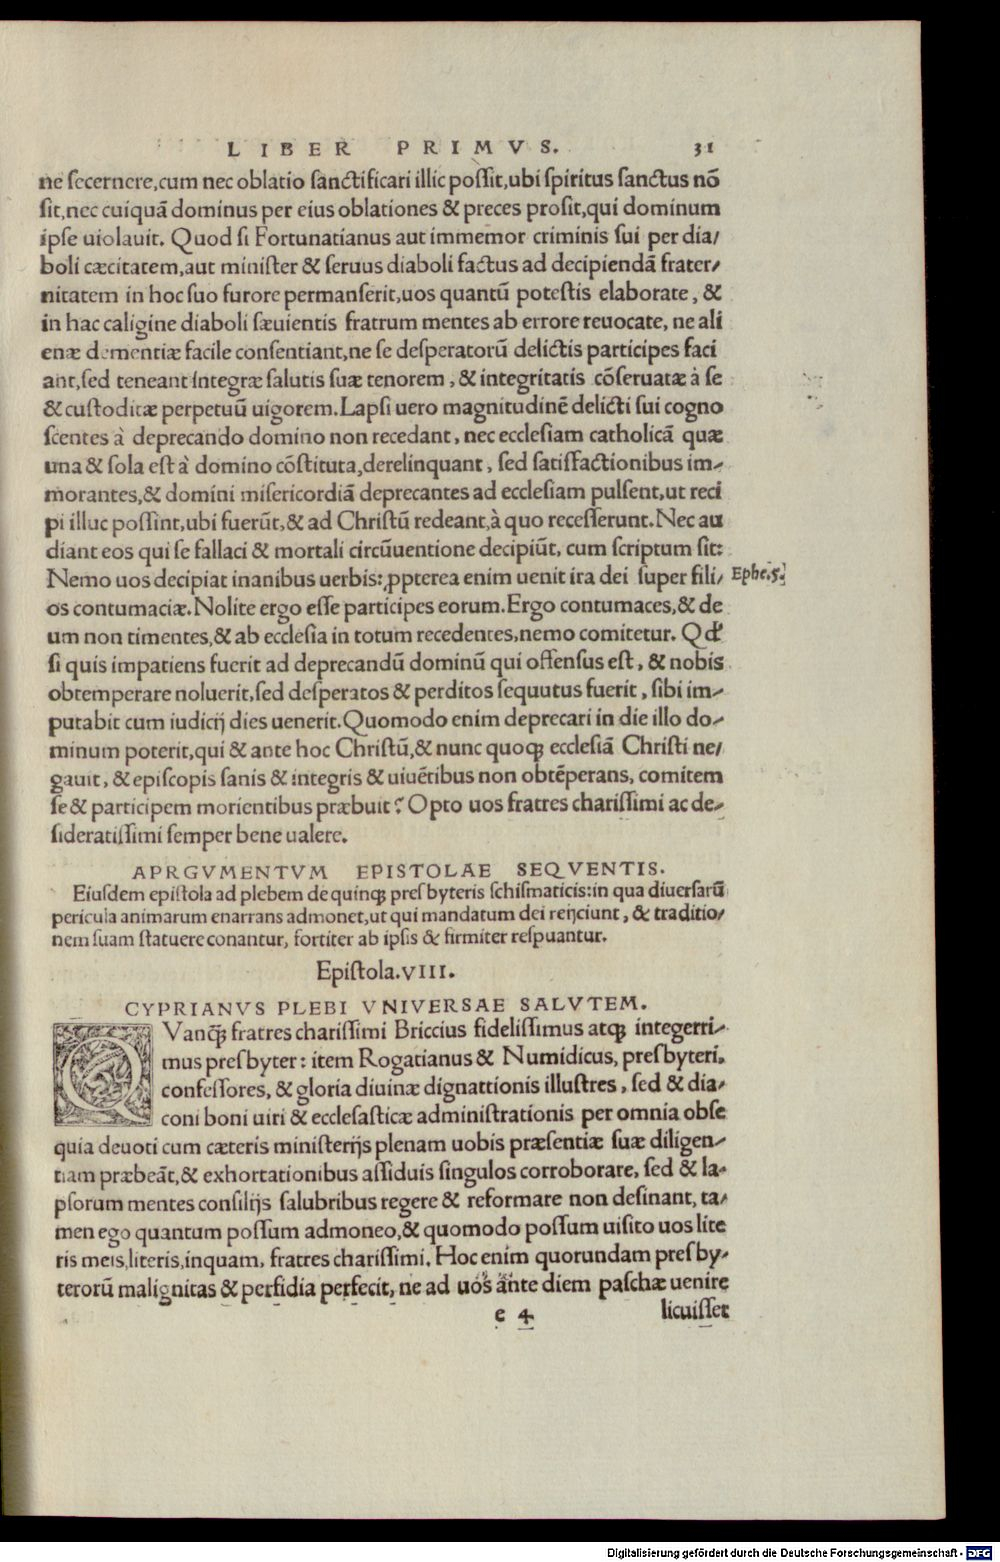 LIBER PRIMVS. 31
ne secernere,cum nec oblatio sanctificari illic possit,ubi spiritus sanctus nõ
sit,nec cuiquã dominus per eius oblationes & preces prosit,qui dominum
ipse uiolauit. Quod si Fortunatianus aut immemor criminis sui per dia/
boli cæcitatem,aut minister & seruus diaboli factus ad decipiendã frater/
nitatem in hoc suo furore permanserit,uos quantũ potestis elaborate, &
in hac caligine diaboli sæuientis fratrum mentes ab errore reuocate, ne ali
enæ dementiæ facile consentiant,ne se desperatorũ delictis participes faci
ant,sed teneant integræ salutis suæ tenorem, & integritatis cõseruatæ à se
& custoditæ perpetuũ uigorem. Lapsi uero magnitudinẽ delicti sui cogno
scentes à deprecando domino non recedant, nec ecclesiam catholicã quæ
una & sola est à domino cõstituta,derelinquant, sed satisfactionibus im-
morantes,& domini misericordiã deprecantes ad ecclesiam pulsent,ut reci
pi illuc possint,ubi fuerũt,& ad Christũ redeant,à quo recesserunt. Nec au
diant eos qui se fallaci & mortali circũuentione decipiũt, cum scriptum sit:
Nemo uos decipiat inanibus uerbis: ꝓpterea enim uenit ira dei super fili/ Ephe.5.
os contumaciæ. Nolite ergo esse participes eorum. Ergo contumaces,& de
um non timentes,& ab ecclesia in totum recedentes,nemo comitetur. Qd'
si quis impatiens fuerit ad deprecandũ dominũ qui offensus est, & nobis
obtemperare noluerit,sed desperatos & perditos sequutus fuerit, sibi im-
putabit cum iudicij dies uenerit. Quomodo enim deprecari in die illo do-
minum poterit,qui & ante hoc Christũ,& nunc quoqꝫ ecclesiã Christi ne/
gauit, & episcopis sanis & integris & uiuẽtibus non obtẽperans, comitem
se & participem morientibus præbuit? Opto uos fratres charissimi ac de-
sideratissimi semper bene ualere.
APRGVMENTVM EPISTOLAE SEQVENTIS.
Eiusdem epistola ad plebem de quinqꝫ presbyteris schismaticis: in qua diuersarũ
pericula animarum enarrans admonet,ut qui mandatum dei reijciunt, & traditio/
nem suam statuere conantur, fortiter ab ipsis & firmiter respuantur.
Epistola.VIII.
CYPRIANVS PLEBI VNIVERSAE SALVTEM.
QVanqꝫ̃ fratres charissimi Briccius fidelissimus atqꝫ integerri-
mus presbyter: item Rogatianus & Numidicus, presbyteri,
confessores, & gloria diuinæ dignattionis illustres, sed & dia-
coni boni uiri & ecclesasticæ administrationis per omnia obse
quia deuoti cum cæteris ministerijs plenam uobis præsentiæ suæ diligen-
tiam præbeãt,& exhortationibus assiduis singulos corroborare, sed & la-
psorum mentes consilijs salubribus regere & reformare non desinant, ta-
men ego quantum possum admoneo,& quomodo possum uisito uos lite
ris meis,literis,inquam, fratres charissimi. Hoc enim quorundam presby-
terorũ malignitas & perfidia perfecit, ne ad uos ante diem paschæ uenire
e 4 licuisset
Digitalisierung gefördert durch die Deutsche Forschungsgemeinschaft - DFG